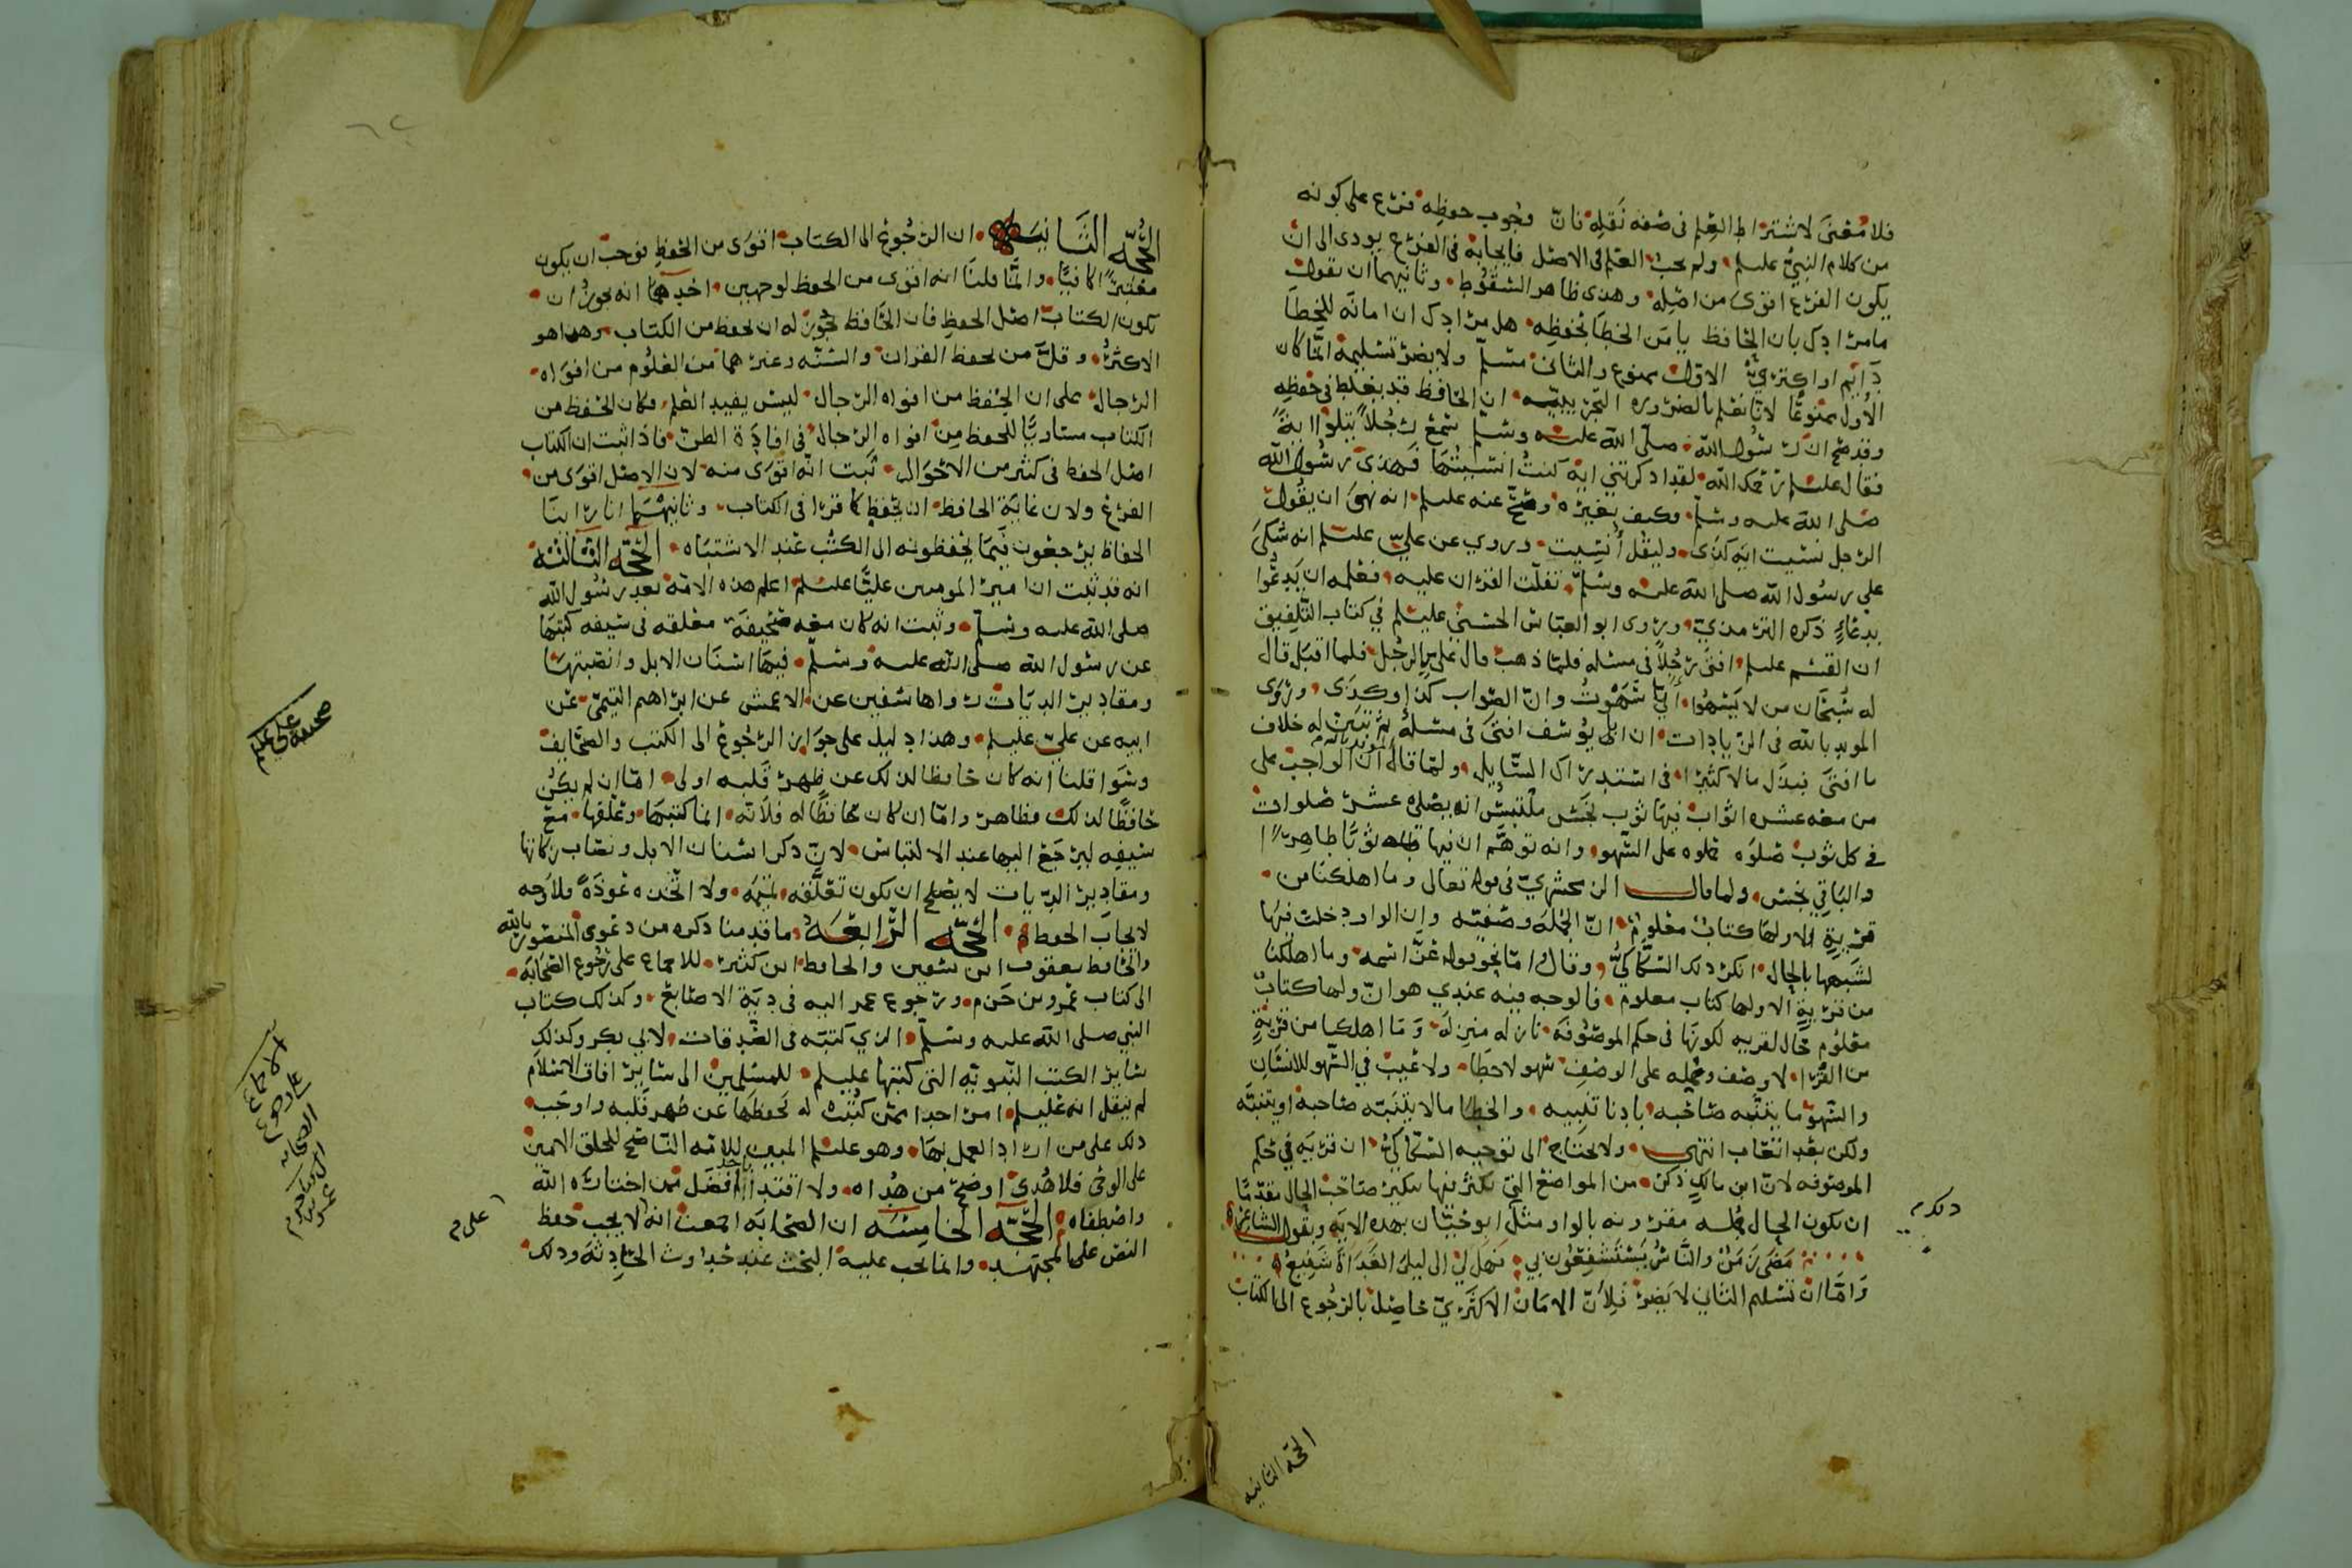 فلا معنى لاشتراط العلم في صفه نقله فان وجوب حفظه فرع على كونه
من كلام النبي عليلم ولم يجب العلم في الاصل فايجابه في الفرع يودى الى ان
يكون الفرع اقوى من اصله وهذى ظاهر السقوط وثانيهما ان نقول
ما مرادك بان الحافظ يامن الخطا بحفظه هل مرادك ان امانه للخطا
دايم او اكثري الاول ممنوع والثاني مسلم ولا يضر تسليمه انما كان
الاول ممنوعا لانا نعلم بالضروره التجريبيه ان الحافظ قد يغلط في حفظه
وقد صح ان رسول الله صلى الله عليه وسلم سمع رجلا يتلوا ايه
فقال عليلم رحمك الله لقد اذكرتني ايه كنت انسيتها فهذى رسول الله
صلى الله عليه وسلم وكيف بغيره وصح عنه عليلم انه نهى ان يقول
الرجل نسيت ايه كذى وليقل أنسيت وروي عن علي عليلم انه شكى
على رسول الله صلى الله عليه وسلم تفلت القران عليه فعلمه ان يدعوا
بدعاء ذكره الترمذي وروى ابو العباس الحسني عليلم في كتاب التلفيق
ان القسم عليلم افتى رجلا في مسئله فلما ذهب قال علي بالرجل فلما اقبل قال
له سبحان من لا يسهوا اني سهوت وان الصواب كذا وكذى وروى
المويد بالله في الزيادات ان ابا يوسف افتى في مسئله ثم تبين له خلاف
ما افتى فبذل مالا كثيرا في استدراك السايل ولما قال المويد بالله ان الواجب على
من معه عشره اثواب فيها ثوب نجس ملتبس انه يصلي عشر صلوات
في كل ثوب صلوه حملوه على السهو وانه توهم ان فيها ثوبا طاهرا
والباقي نجس ولما قال الزمخشري في قوله تعالى وما اهلكنا من
قرية الا ولها كتاب معلوم ان الجمله وصفيه وان الواو دخلت فيها
لشبهها بالحال انكر ذلك السكاكي وقال اما نحو قوله عز اسمه وما اهلكنا
من قرية الا ولها كتاب معلوم فالوجه فيه عندي هو ان ولها كتاب
معلوم حال لقريه لكونها في حكم الموصوفه نازله منزله وما اهلكنا من قرية
من القرا لا وصف وحمله على الوصف سهو لا خطا ولا عيب في السهو للانسان
والسهو ما يتنبه صاحبه بادنا تنبيه والخطا مالا يتنبه صاحبه او يتنبه
ولكن بعد اتعاب انتهى ولا يحتاج الى توجيه السكاكي ان قريه في حكم
الموصوفه لان ابن مالك ذكر من المواضع التي يكثر فيها تنكير صاحب الحال مقدما
ان تكون الحال جمله مقرونه بالواو مثل ابو حيان بهذه الايه وبقول الشاعر
مضى زمن والناس يستشفعون بي فهل لي الى ليلى الغداة شفيع
واما ان تسليم الثاني لا يضر فلأن الامان الاكثري حاصل بالرجوع الى الكتاب
الحجه الثانيه
الحجه الثانيه ان الرجوع الى الكتاب اقوى من الحفظ فوجب ان يكون
معتبرا كافيا وانما قلنا انه اقوى من الحفظ لوجهين احدهما انه يجوز ان
يكون الكتاب اصل الحفظ فان الحافظ يجوز له ان يحفظ من الكتاب وهذا هو
الاكثر وقل من يحفظ القران والسنه وغيرهما من العلوم من افواه
الرجال على ان الحفظ من افواه الرجال ليس يفيد العلم فكان الحفظ من
الكتاب مساويا للحفظ من افواه الرجال في افادة الظن فاذا ثبت ان الكتاب
اصل الحفظ في كثير من الاحوال ثبت انه اقوى منه لان الاصل اقوى من
الفرع ولان غاية الحافظ ان يحفظ كما قرا في الكتاب وثانيهما انا راينا
الحفاظ يرجعون فيما يحفظونه الى الكتب عند الاشتباه الحجه الثالثه
انه قد ثبت ان امير المومنين عليا عليلم اعلم هذه الامه بعد رسول الله
صلى الله عليه وسلم وثبت انه كان معه صحيفه معلقه في سيفه كتبها
عن رسول الله صلى الله عليه وسلم فيها اسنان الابل وانصبتها
ومقادير الديات رواها سفين عن الاعمش عن ابراهيم التيمي عن
ابيه عن علي عليلم وهذا دليل على جواز الرجوع الى الكتب والصحايف
وسوا قلنا انه كان حافظا لذلك عن ظهر قلبه اولى اما ان لم يكن
حافظا لذلك فظاهر واما ان كان حافظا له فلانه انما كتبها وعلقها مع
سيفه ليرجع اليها عند الالتباس لان ذكر اسنان الابل ونصاب زكاتها
ومقادير الديات لا يصلح ان يكون تعلقه تميمه ولا اتخذه عوذة فلا وجه
لايجاب الحفظ الحجه الرابعه ما قدمنا ذكره من دعوى المنصور بالله
والحافظ يعقوب ابن سفين والحافظ ابن كثير للاجماع على رجوع الصحابه
الى كتاب عمرو بن حزم ورجوع عمر اليه في دية الاصابع وكذلك كتاب
النبي صلى الله عليه وسلم الذي كتبه في الصدقات لابي بكر وكذلك
ساير الكتب النبويه التي كتبها عليلم للمسلمين الى ساير افاق الاسلام
لم ينقل انه عليلم امر احدا ممن كتبت له بحفظها عن ظهر قلبه واوجب
ذلك على من اراد العمل بها وهو عليلم المبين للامه الناصح للخلق الامين
على الوحي فلا هدى اوضح من هداه ولا اقتدا افضل ممن اختاره الله
واصطفاه الحجه الخامسه ان الصحابه اجمعت انه لا يجب حفظ
النص على المجتهد وانما يجب عليه البحث عند حدوث الحادثه وذلك
صحيفه علي عليلم